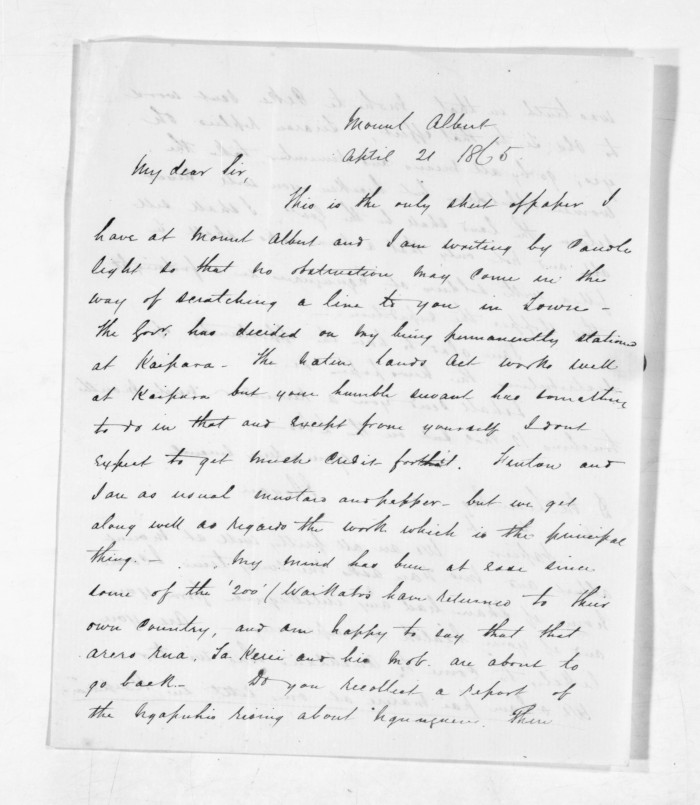 Mount Albert
April 21 1865
My dear Sir,
This is the only sheet of paper I
have at Mount Albert and I am writing by Candle
light so that no obstruction may come in the
way of scratching a line to you in Town -
The Govt. has decided on my being permanently stationed
at Kaipara - The Native Lands Act works well
at Kaipara but your humble servant has something
to do in that and except from yourself I dont
expect to get much credit for it. Fenton and
I are as usual mustard and pepper - but we get
along well as regards the work which is the principal
thing. - My mind has been at ease since
some of the '200' Waikatos have returned to their
own Country, and am happy to say that that
arero rua. Ta Kerei and his Mob. are about to
go back - Do you recollect a report of
the Ngapuhis rising about There